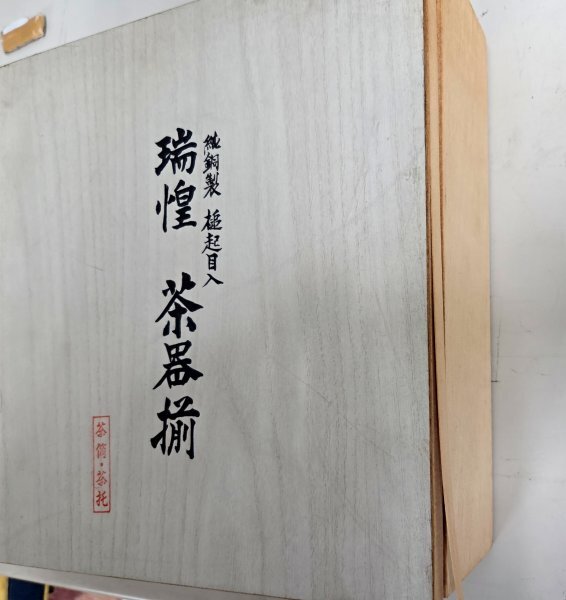 純銅製 槌起目入
瑞惶 茶器揃
茶筒・茶托